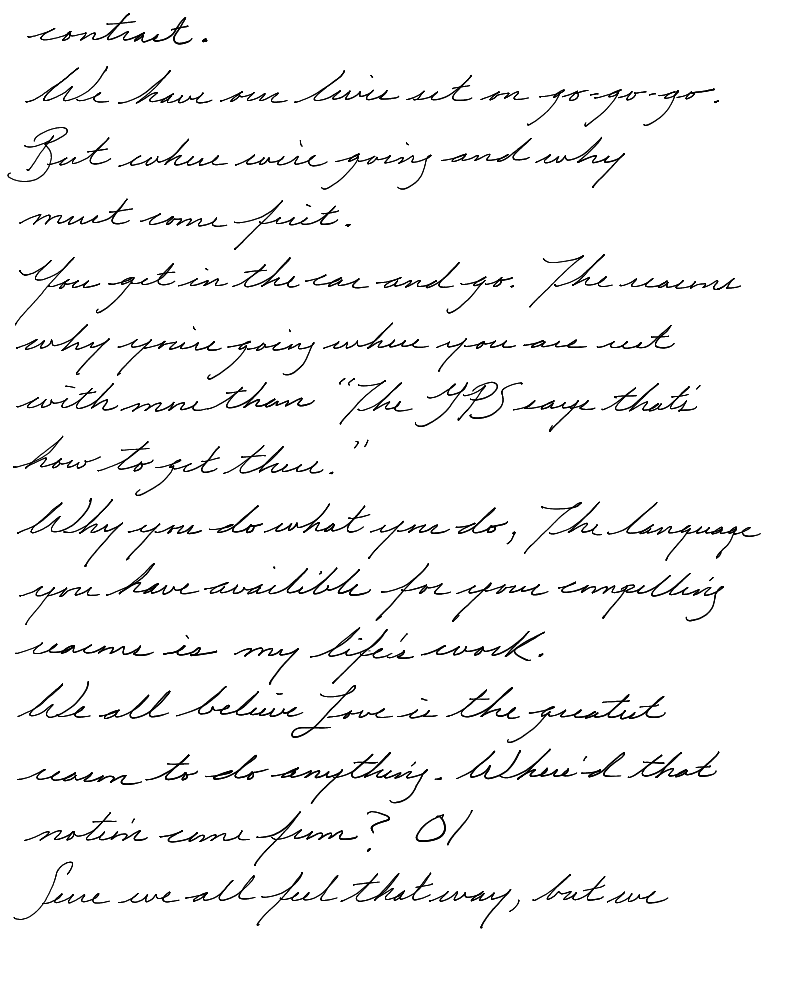 contract.
We have our lives set on go-go-go.
But where we're going and why
must come first.
You get in the car and go. The reasons
why you're going where you are rest
with more than "The GPS says that's
how to get there."
Why you do what you do, The language
you have availible for your compelling
reasons is my life's work.
We all believe Love is the greatest
reason to do anything. Where'd that
notion come from?
Sure we all feel that way, but we